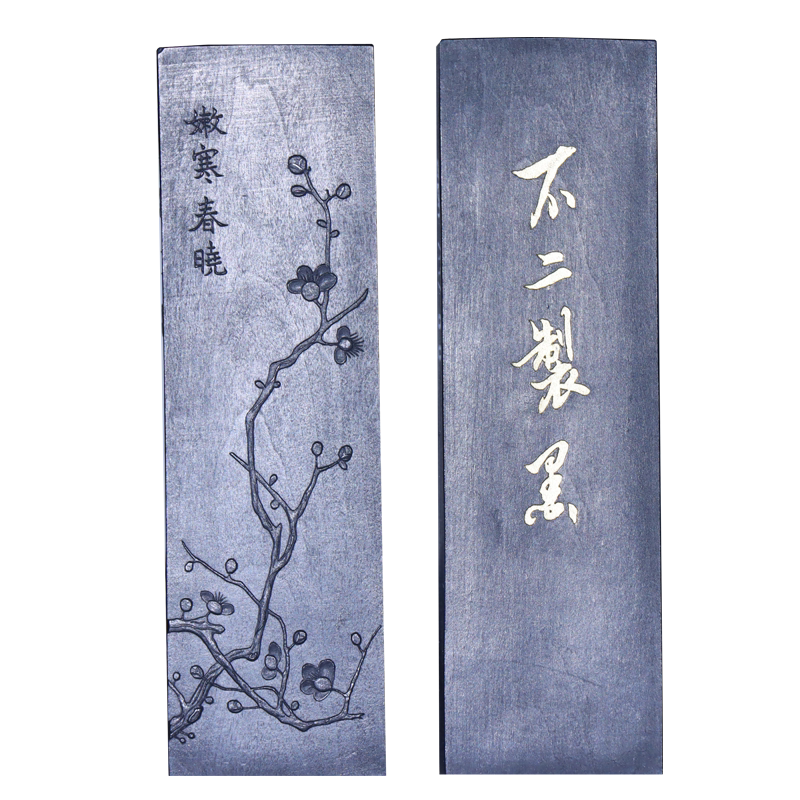 嫩寒春曉
不二製墨